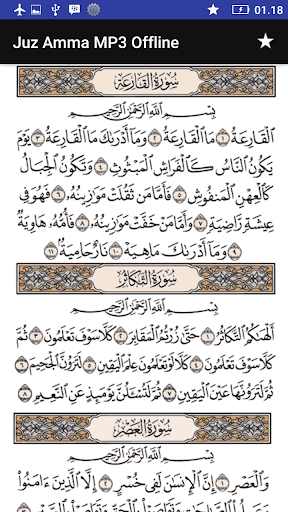 01.18
Juz Amma MP3 Offline
سُورَةُ القَارِعَة
بِسْمِ اللَّهِ الرَّحْمَٰنِ الرَّحِيمِ
الْقَارِعَةُ ١ مَا الْقَارِعَةُ ٢ وَمَا أَدْرَىٰكَ مَا الْقَارِعَةُ ٣ يَوْمَ
يَكُونُ النَّاسُ كَالْفَرَاشِ الْمَبْثُوثِ ٤ وَتَكُونُ الْجِبَالُ
كَالْعِهْنِ الْمَنفُوشِ ٥ فَأَمَّا مَن ثَقُلَتْ مَوَازِينُهُ ٦ فَهُوَ فِي
عِيشَةٍ رَّاضِيَةٍ ٧ وَأَمَّا مَنْ خَفَّتْ مَوَازِينُهُ ٨ فَأُمُّهُ هَاوِيَةٌ
٩ وَمَا أَدْرَىٰكَ مَا هِيَهْ ١٠ نَارٌ حَامِيَةٌ ١١
سُورَةُ التَّكَاثُر
بِسْمِ اللَّهِ الرَّحْمَٰنِ الرَّحِيمِ
أَلْهَىٰكُمُ التَّكَاثُرُ ١ حَتَّىٰ زُرْتُمُ الْمَقَابِرَ ٢ كَلَّا سَوْفَ تَعْلَمُونَ ٣ ثُمَّ
كَلَّا سَوْفَ تَعْلَمُونَ ٤ كَلَّا لَوْ تَعْلَمُونَ عِلْمَ الْيَقِينِ ٥ لَتَرَوُنَّ الْجَحِيمَ
٦ ثُمَّ لَتَرَوُنَّهَا عَيْنَ الْيَقِينِ ٧ ثُمَّ لَتُسْـَٔلُنَّ يَوْمَئِذٍ عَنِ النَّعِيمِ ٨
سُورَةُ العَصْر
بِسْمِ اللَّهِ الرَّحْمَٰنِ الرَّحِيمِ
وَالْعَصْرِ ١ إِنَّ الْإِنسَٰنَ لَفِي خُسْرٍ ٢ إِلَّا الَّذِينَ ءَامَنُوا